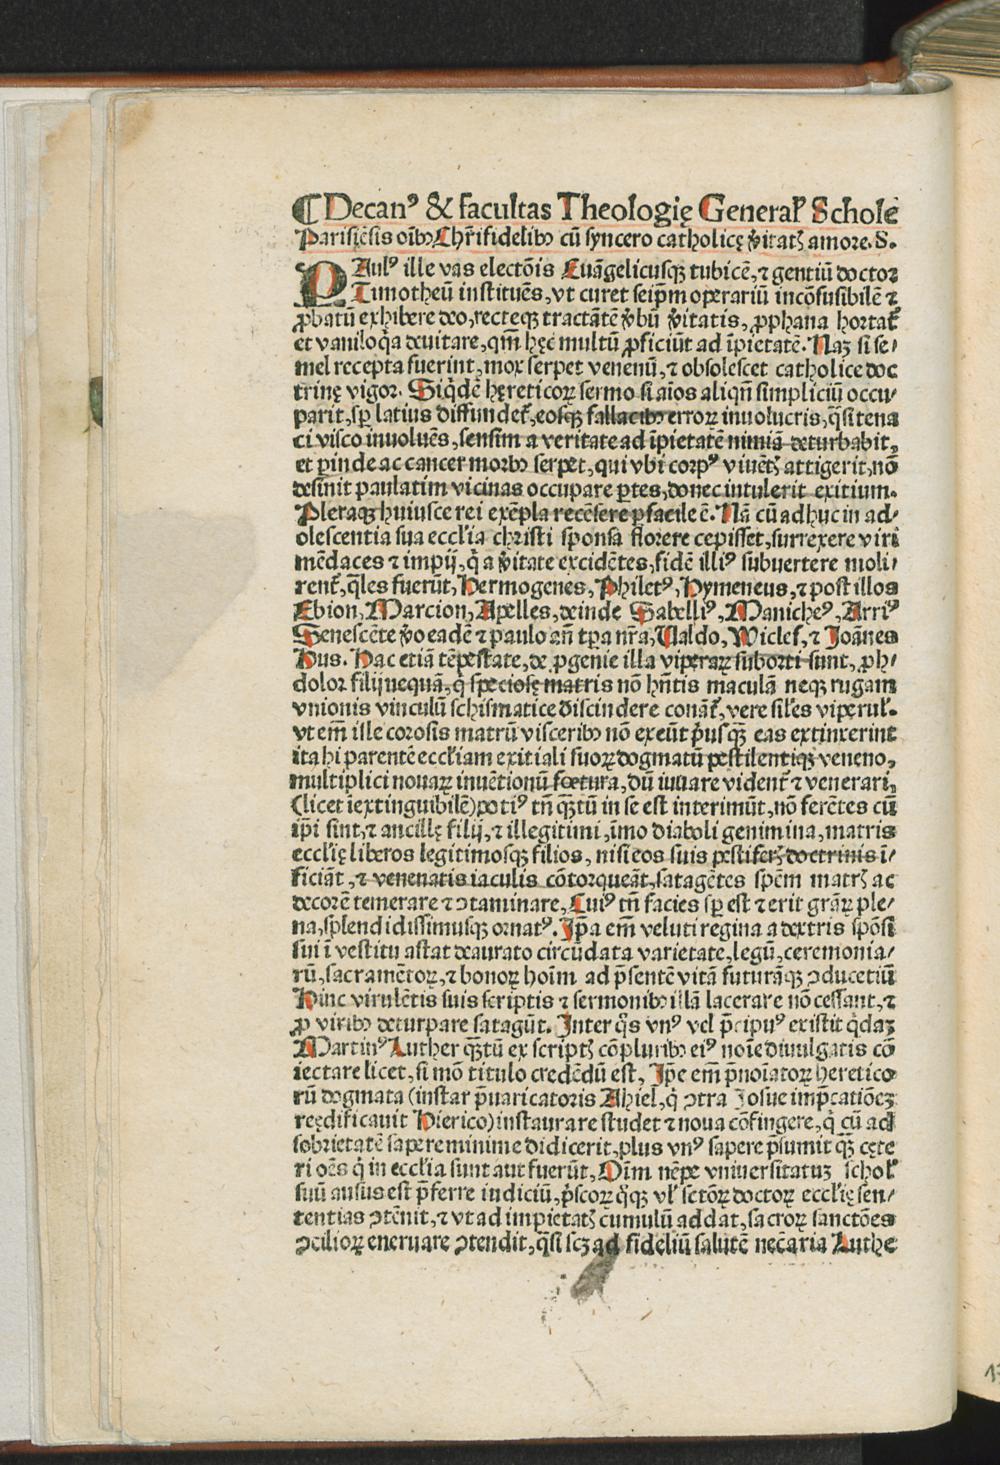 ¶ Decanꝰ & facultas Theologię Generaꝉ Scholę
Parisiēsis oībꝫ Chr̄ifidelibꝫ cū syncero catholicę v̓itatꝭ amore. S.
PAulꝰ ille vas elect̄ois Euāgelicusqꝫ tubicē, ⁊ gentiū doctor
Timotheū instituēs, vt curet seip̄m operariū incōfusibilē ⁊
ꝓbatū exhibere deo, recteqꝫ tractātē v̓bū v̓itatis, ꝓphana hortat᷑
et vaniloq̄a deuitare, qm̄ hęc multū ꝓficiūt ad īpietatē. Naꝫ si se/
mel recepta fuerint, mox serpet venenū, ⁊ obsolescet catholice doc
trinę vigor. Siqͥdē hęreticoꝝ sermo si aīos aliqn̄ simpliciū occu/
parit, sꝑ latius diffundet᷑, eosqꝫ fallacibꝫ erroꝝ inuolucris, q̄si tena
ci visco inuoluēs, sensim a veritate ad īpietatē nimiā deturbabit,
et ꝑinde ac cancer morbꝫ serpet, qui vbi corpꝰ viuētꝭ attigerit, nō
desinit paulatim vicinas occupare ꝑtes, donec intulerit exitium.
Pleraqꝫ huiusce rei exēpla recēsere ꝑfacile ē. Nā cū adhuc in ad/
olescentia sua eccl̄ia christi sponsa florere cepisset, surrexere viri
mēdaces ⁊ impij, qͥ a v̓itate excidētes, fidē illiꝰ subuertere moli/
rent᷑, q̄les fuerūt, Hermogenes, Philetꝰ, Hymeneus, ⁊ post illos
Ebion, Marcion, Apelles, deinde Sabelliꝰ, Manicheꝰ, Arriꝰ
Senescēte v̓o eadē ⁊ paulo an̄ tꝑa nr̄a, Valdo, Wiclef, ⁊ Joānes
Hus. Hac etiā tēpestate, de ꝓgenie illa viperaꝝ suborti sunt, ꝓh/
dolor filij nequā, qͥ speciosę matris nō hn̄tis maculā neqꝫ rugam
vnionis vinculū schismatice discindere conant᷑, vere siꝉes vipęruꝉ.
vt em̄ ille corosis matrū visceribꝫ nō exeūt pͥusqꝫ̄ eas extinxerint
ita hi parentē eccl̄iam exitiali suoꝝ dogmatū pestilentiqꝫ veneno,
multiplici nouaꝝ inuētionū fœtura, dū iuuare vident᷑ ⁊ venerari,
(licet īextinguibilē) potiꝰ tn̄ qꝫ̄tū in se est interimūt, nō ferētes cū
ip̄i sint, ⁊ ancillę filij, ⁊ illegitimi, īmo diaboli genimina, matris
eccl̄ię liberos legitimosqꝫ filios, nisi eos suis pestiferꝭ doctrinis ī/
ficiāt, ⁊ venenatis iaculis cōtorqueāt, satagētes spēm matrꝭ ac
decorē temerare ⁊ ꝯtaminare, Cuiꝰ tn̄ facies sꝑ est ⁊ erit grāꝝ ple/
na, splendidissimusqꝫ ornatꝰ. Ip̄a em̄ veluti regina a dextris spōsi
sui ī vestitu astat deaurato circūdata varietate, legū, ceremonia/
rū, sacramētoꝝ, ⁊ bonoꝝ hoīm ad p̄sentē vitā futurāqꝫ ꝯducetiū
Hinc virulētis suis scriptis ⁊ sermonibꝫ illā lacerare nō cessant, ⁊
ꝓ viribꝫ deturpare satagūt. Inter q̄s vnꝰ vel p̄cipuꝰ existit qͥdaꝫ
Martinꝰ Luther qꝫ̄tū ex scriptꝭ cōpluribꝫ eiꝰ noīe diuulgatis cō
iectare licet, si mō titulo credēdū est, Ip̄e em̄ p̄noīatoꝝ heretico
rū dogmata (instar p̄uaricatoris Ahiel, qͥ ꝯtra Josue imp̄catiōeꝫ
reędificauit Hierico) instaurare studet ⁊ noua cōfingere, qͥ cū ad
sobrietatē sapere minime didicerit, plus vnꝰ sapere p̄sumit qꝫ̄ cęte
ri oēs qͥ in eccl̄ia sunt aut fuerūt, Oīm nēpe vniuersitatuꝫ schoꝉ
suū ausus est p̄ferre iudiciū, pͥscoꝝ qͦqꝫ vꝉ sctōꝝ doctoꝝ eccl̄ię sen/
tentias ꝯtēnit, ⁊ vt ad impietatꝭ cumulū addat, sacroꝝ sanctōes
ꝯcilioꝝ eneruare ꝯtendit, q̄si scꝫ ad fideliū salutē necāria Luthe